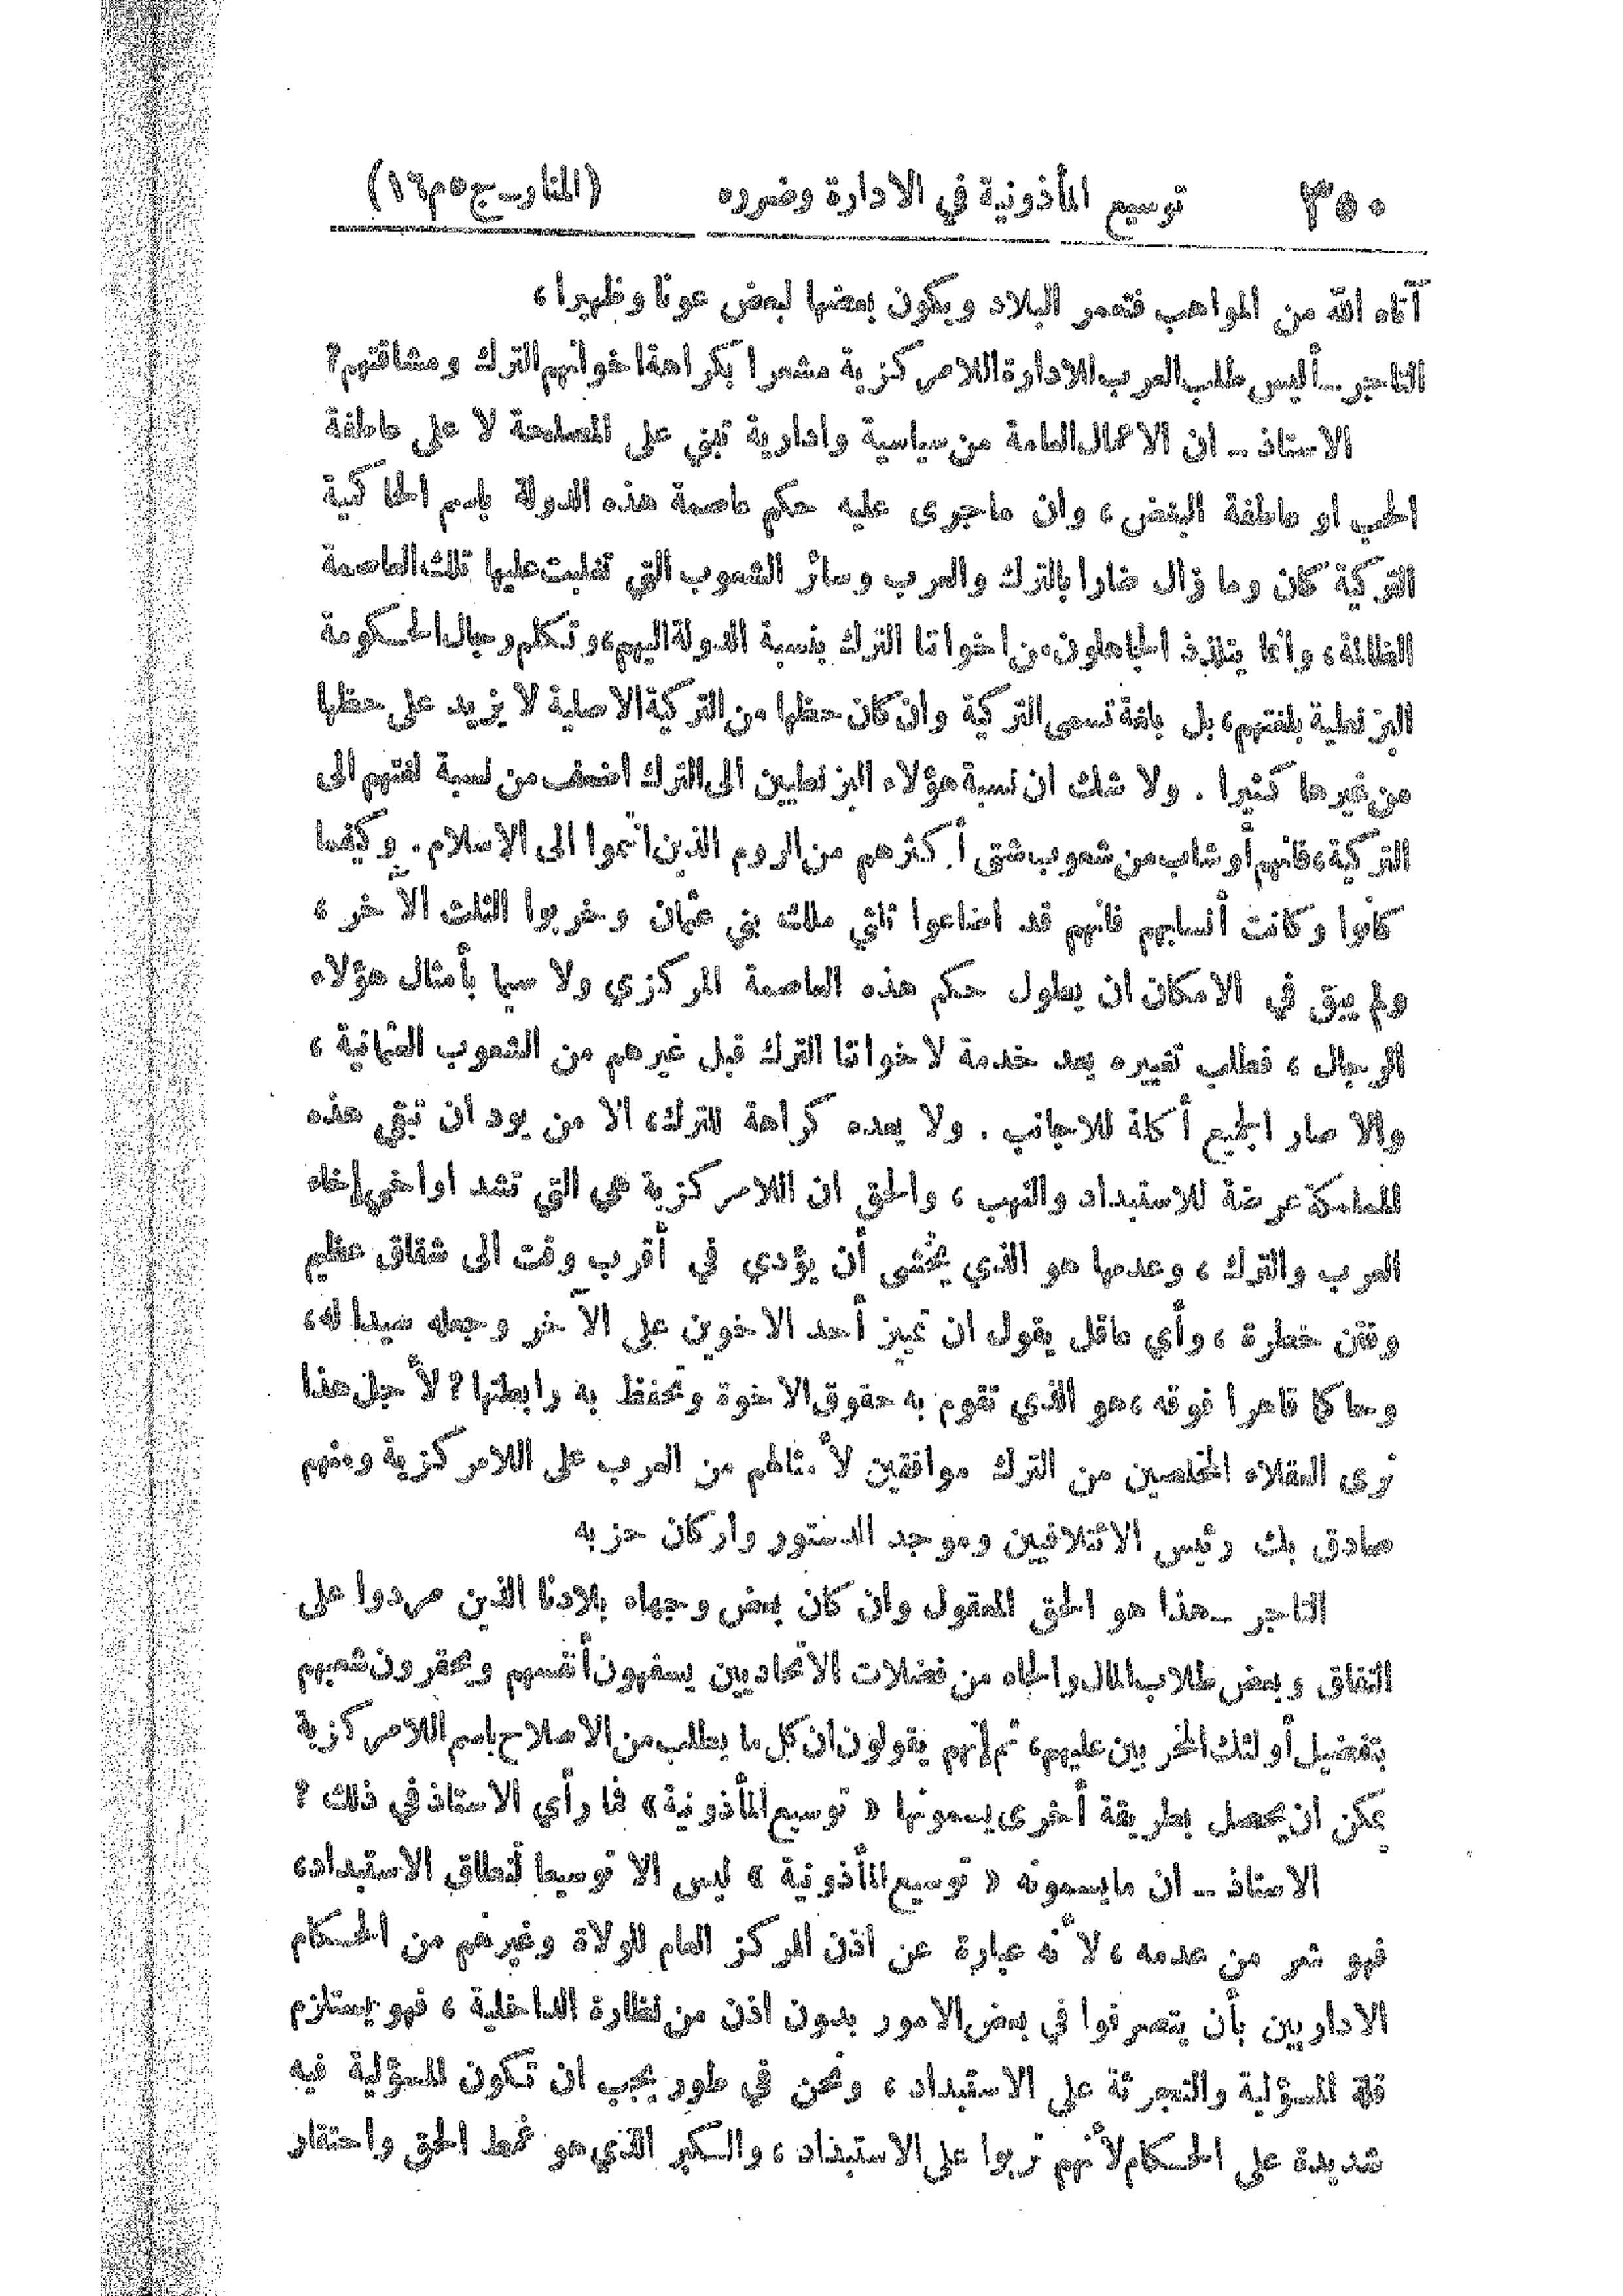 ٣٥٠ توسيع المأذونية في الادارة وضرره (المنار ــ ج ٥ م ١٦)
آتاه الله من المواهب فتعمر البلاد ويكون بعضها لبعض عونا وظهيرا ،
التاجر ــ أليس طلب العرب للادارة اللامركزية مشعرا بكراهة اخوانهم الترك ومشاقتهم ؟
الاستاذ ــ ان الاعمال العامة من سياسية وادارية تبنى على المصلحة لا على عاطفة
الحب او عاطفة البغض ، وان ماجرى عليه حكم عاصمة هذه الدولة باسم الحاكمية
التركية كان وما زال ضارا بالترك والعرب وسائر الشعوب التي تغلبت عليها تلك العاصمة
الظالمة ، وانما يتلذذ الجاهلون من اخواننا الترك بنسبة الدولة اليهم ، وتكلم رجال الحكومة
البزنطية بلغتهم ، بل بلغة تسمى التركية وان كان حظها من التركية الاصلية لا يزيد على حظها
من غيرها كثيرا . ولا شك ان نسبة هؤلاء البزنطيين الى الترك اضعف من نسبة لغتهم الى
التركية ، فانهم أوشاب من شعوب شتى أكثرهم من الروم الذين انتموا الى الإسلام . وكيفما
كانوا وكانت أنسابهم فانهم قد اضاعوا ثلثي ملك بني عثمان وخربوا الثلث الآخر ،
ولم يبق في الامكان ان يطول حكم هذه العاصمة المركزي ولا سيما بأمثال هؤلاء
الرجال ، فطلب تغييره يعد خدمة لاخواننا الترك قبل غيرهم من الشعوب العثمانية ،
والا صار الجميع أكلة للاجانب . ولا يعده كراهة للترك ، الا من يود ان تبقى هذه
المملكة عرضة للاستبداد والنهب ، والحق ان اللامركزية هي التي تشد اواخي إخاء
العرب والترك ، وعدمها هو الذي يخشى أن يؤدي في أقرب وقت الى شقاق عظيم
وفتن خطرة ، وأي عاقل يقول ان تميز أحد الاخوين على الآخر وجعله سيدا له ،
وحاكما قاهرا فوقه ، هو الذي تقوم به حقوق الاخوة وتحفظ به رابطتها ؟ لأجل هذا
نرى العقلاء المخلصين من الترك موافقين لأمثالهم من العرب على اللامركزية ومنهم
صادق بك رئيس الائتلافيين وموجد الدستور واركان حزبه
التاجر ــ هذا هو الحق المعقول وان كان بعض وجهاء بلادنا الذين مردوا على
النفاق وبعض طلاب المال والجاه من فضلات الاتحاديين يسفهون أنفسهم ويحقرون شعبهم
بتفضيل أولئك المخربين عليهم ، ثم إنهم يقولون ان كل ما يطلب من الاصلاح باسم اللامركزية
يمكن ان يحصل بطريقة أخرى يسمونها « توسيع المأذونية » فما رأي الاستاذ في ذلك ؟
الاستاذ ــ ان مايسمونه « توسيع المأذونية » ليس الا توسيعا لنطاق الاستبداد ،
فهو شر من عدمه ، لأنه عبارة عن اذن المركز العام للولاة وغيرهم من الحكام
الاداريين بأن يتصرفوا في بعض الامور بدون اذن من نظارة الداخلية ، فهو يستلزم
قلة المسؤلية والتجرئة على الاستبداد ، ونحن في طور يجب ان تكون المسؤلية فيه
شديدة على الحكام لأنهم تربوا على الاستبداد ، والكبر الذي هو غمط الحق واحتقار